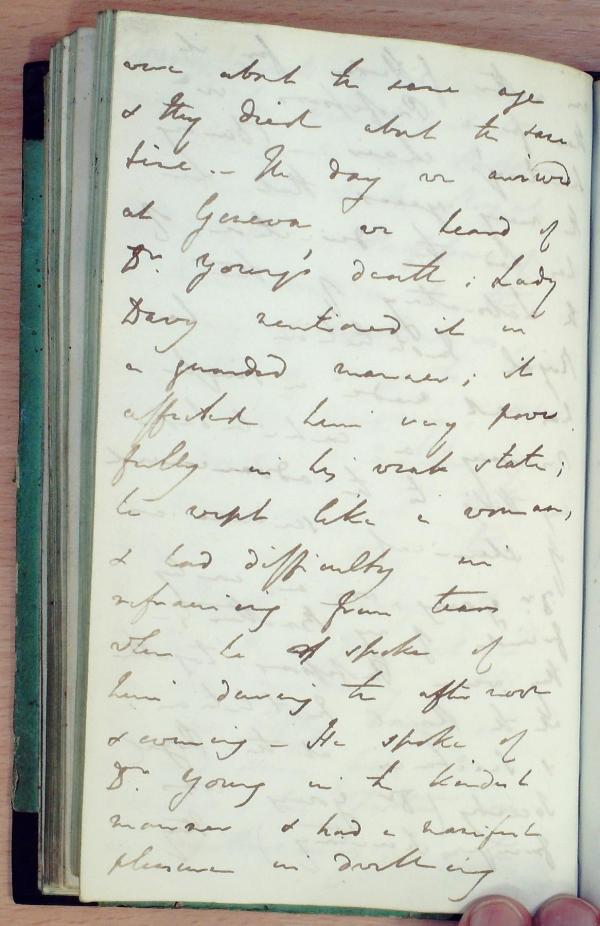 were about the same age
& they died about the same
time. – The day we arrived
at Geneva, we heard of
Dr. Young's death; Lady
Davy mentioned it in
a guarded manner; it
affected him very power
fully in his weak state;
he wept like a woman,
& had difficulty in
refraining from tears
when he spoke of
him during the afternoon
& evening – He spoke of
Dr. Young in the kindest
manner & had a manifest
pleasure in dwelling